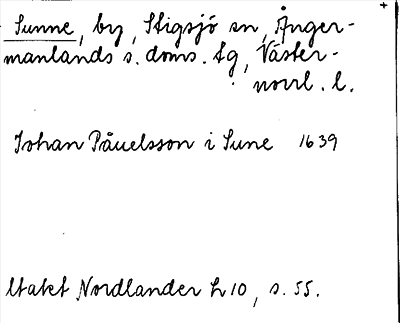 Sunne, by, Stigsjö sn, Ånger-
manlands s. doms. tg, Väster-
norrl. l.
Johan Påuelsson i Sune 1639
Utakt Nordlander h 10, s. 55.